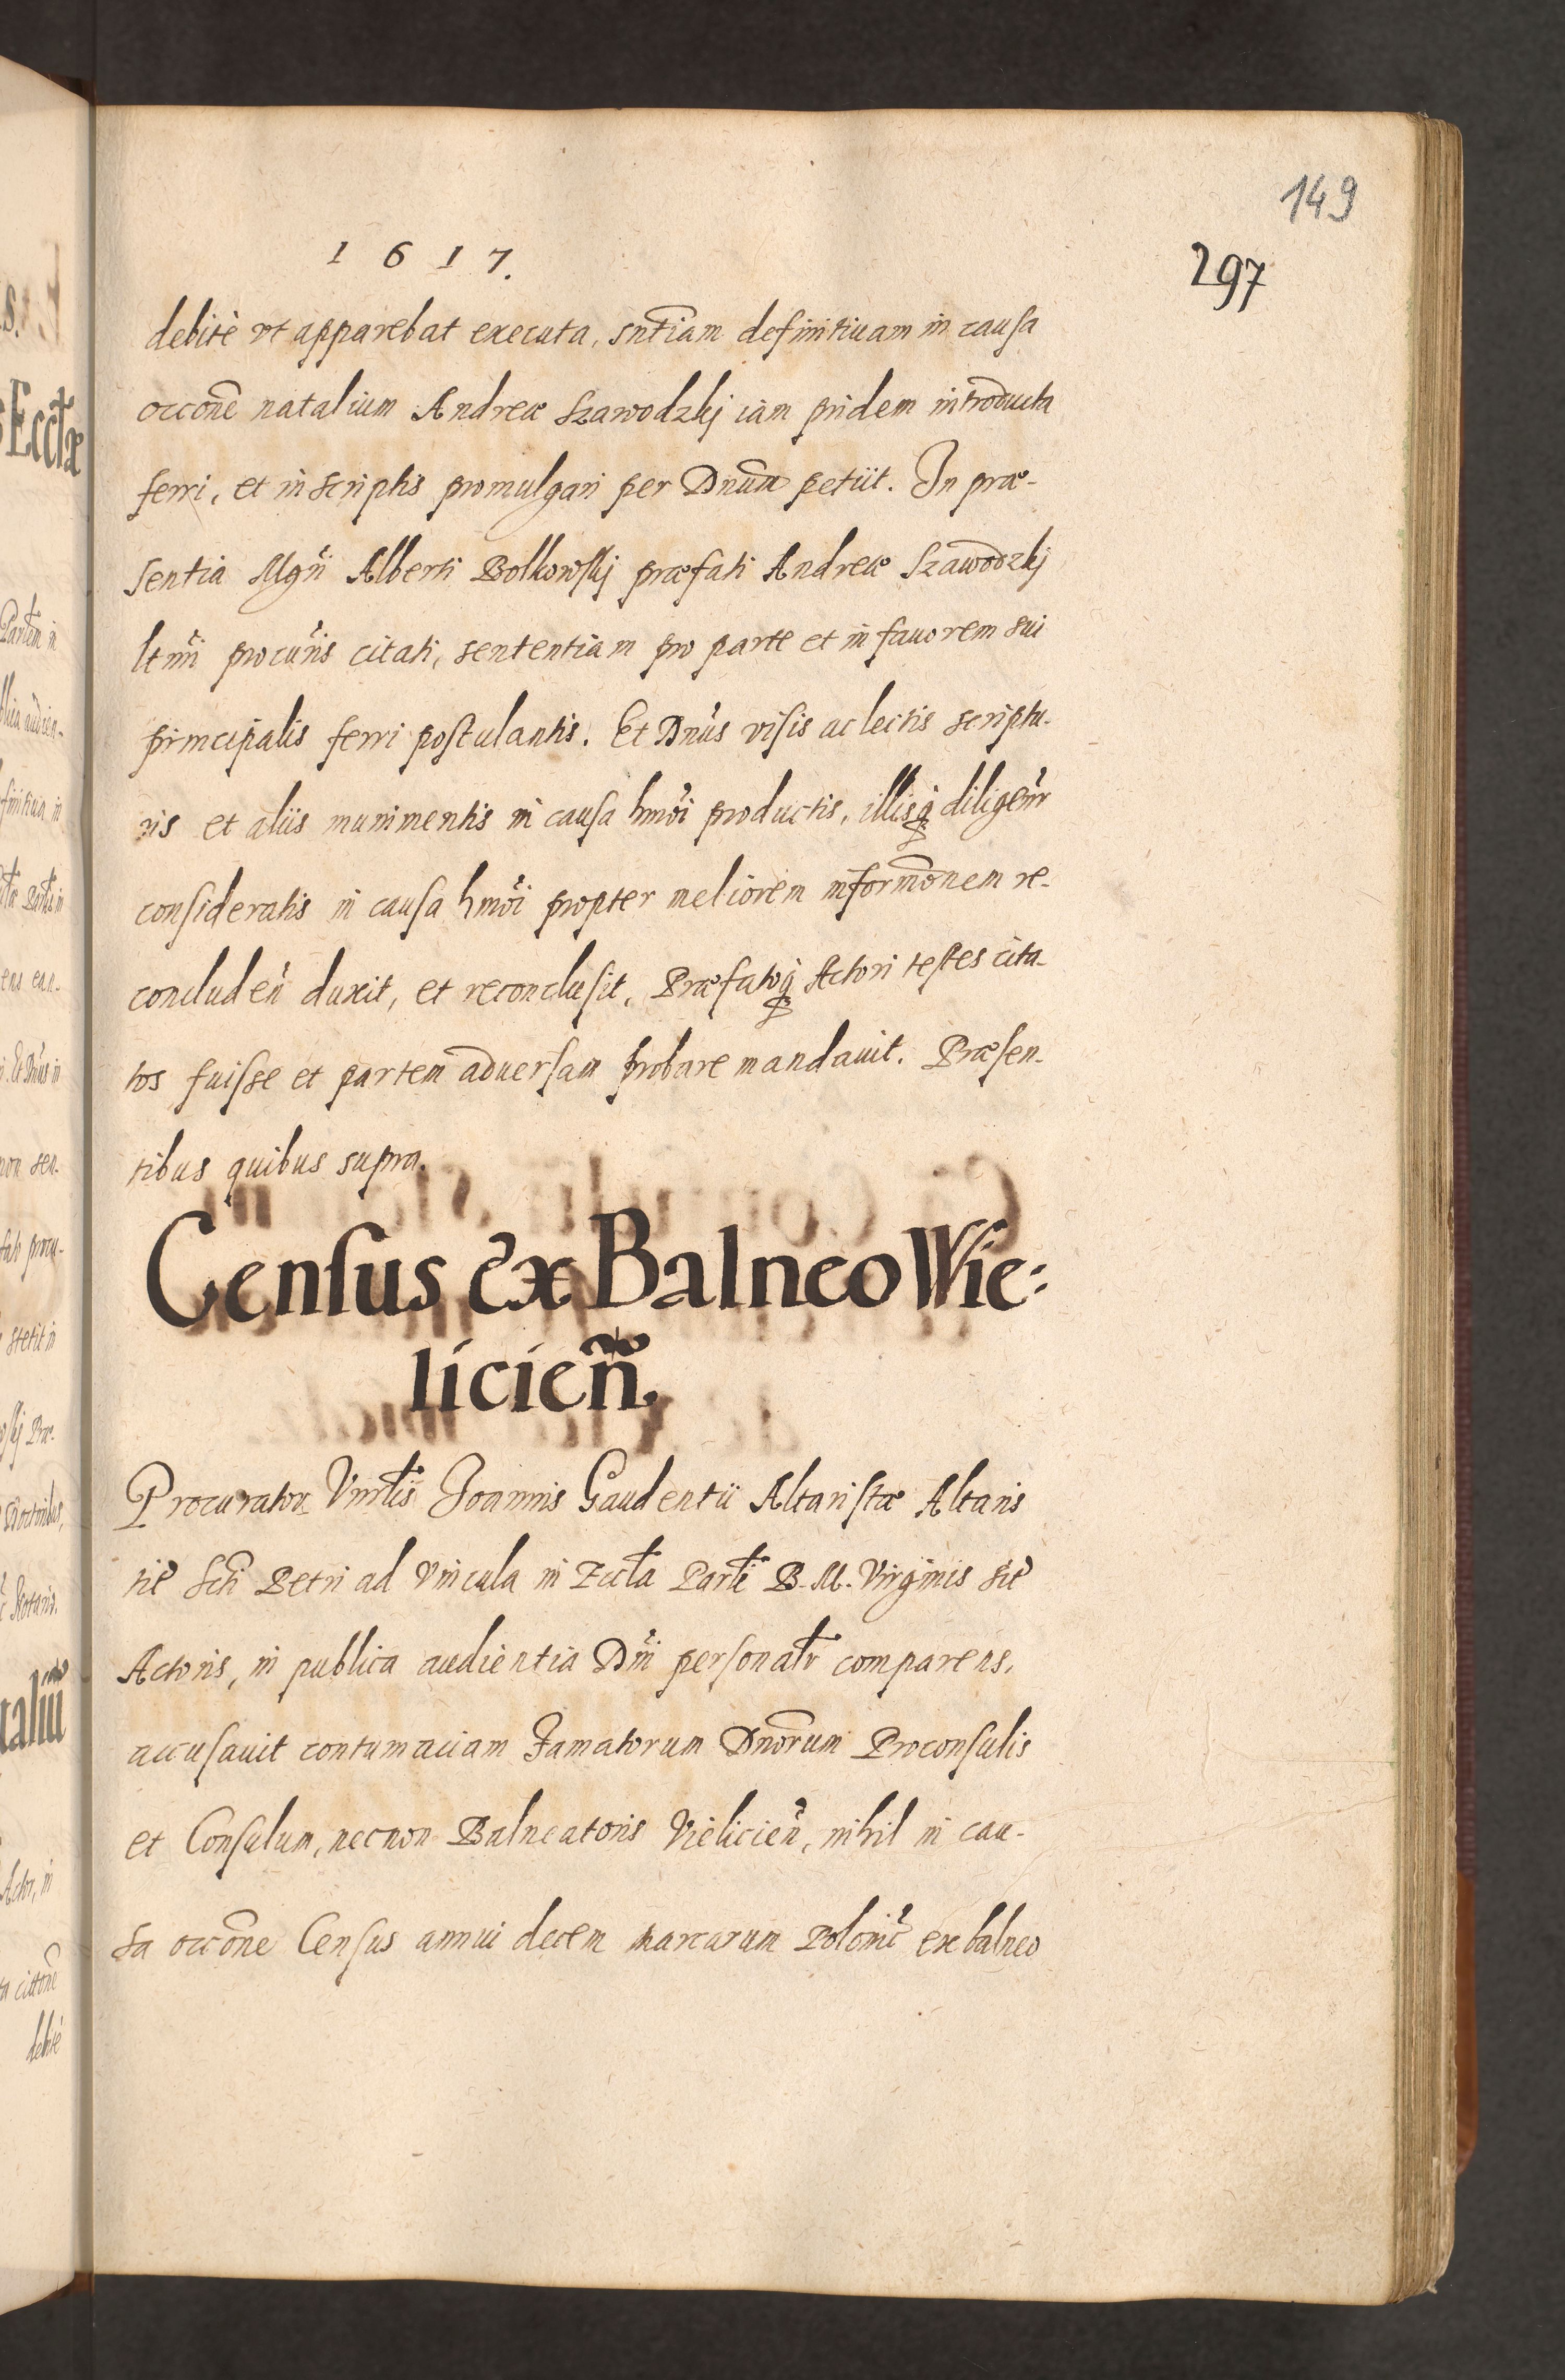 149
1617.
297
debitè vt apparebat executa, sntiam definitiuam in causa
occone natalium Andreæ Szawodzkj iam pridem introducta
ferri, et in scriptis promulgari per Dnum petiit. In præ-
sentia Mgri Alberti Bolkowskj præfati Andreæ Szawodzkj
ltimi procuris citati, sententiam pro parte et in fauorem sui
principalis ferri postulantis. Et Dnus visis ac lectis scriptu-
ris et aliis munimentis in causa hmoi productis, illisq diligentr
consideratis in causa hmoi propter meliorem informonem re-
concluden duxit, et reconclusit, Præfatoq Actori testes cita-
tos fuisse et partem aduersam probare mandauit. Præsen-
tibus quibus supra.
Census ex Balneo Wie:
licien.
Procurator Vnrlis Joannis Gaudentii Altaristæ Altaris
tit Scti Petri ad Vincula in Eccla Parli B. M. Virginis sit
Actoris, in publica audientia Dni personalr comparens,
accusauit contumaciam Famatorum Dnorum Proconsulis
et Consulum, necnon Balneatoris Vielicien, nihil in cau-
sa occone Census annui decem marcarum Polonic ex balneo